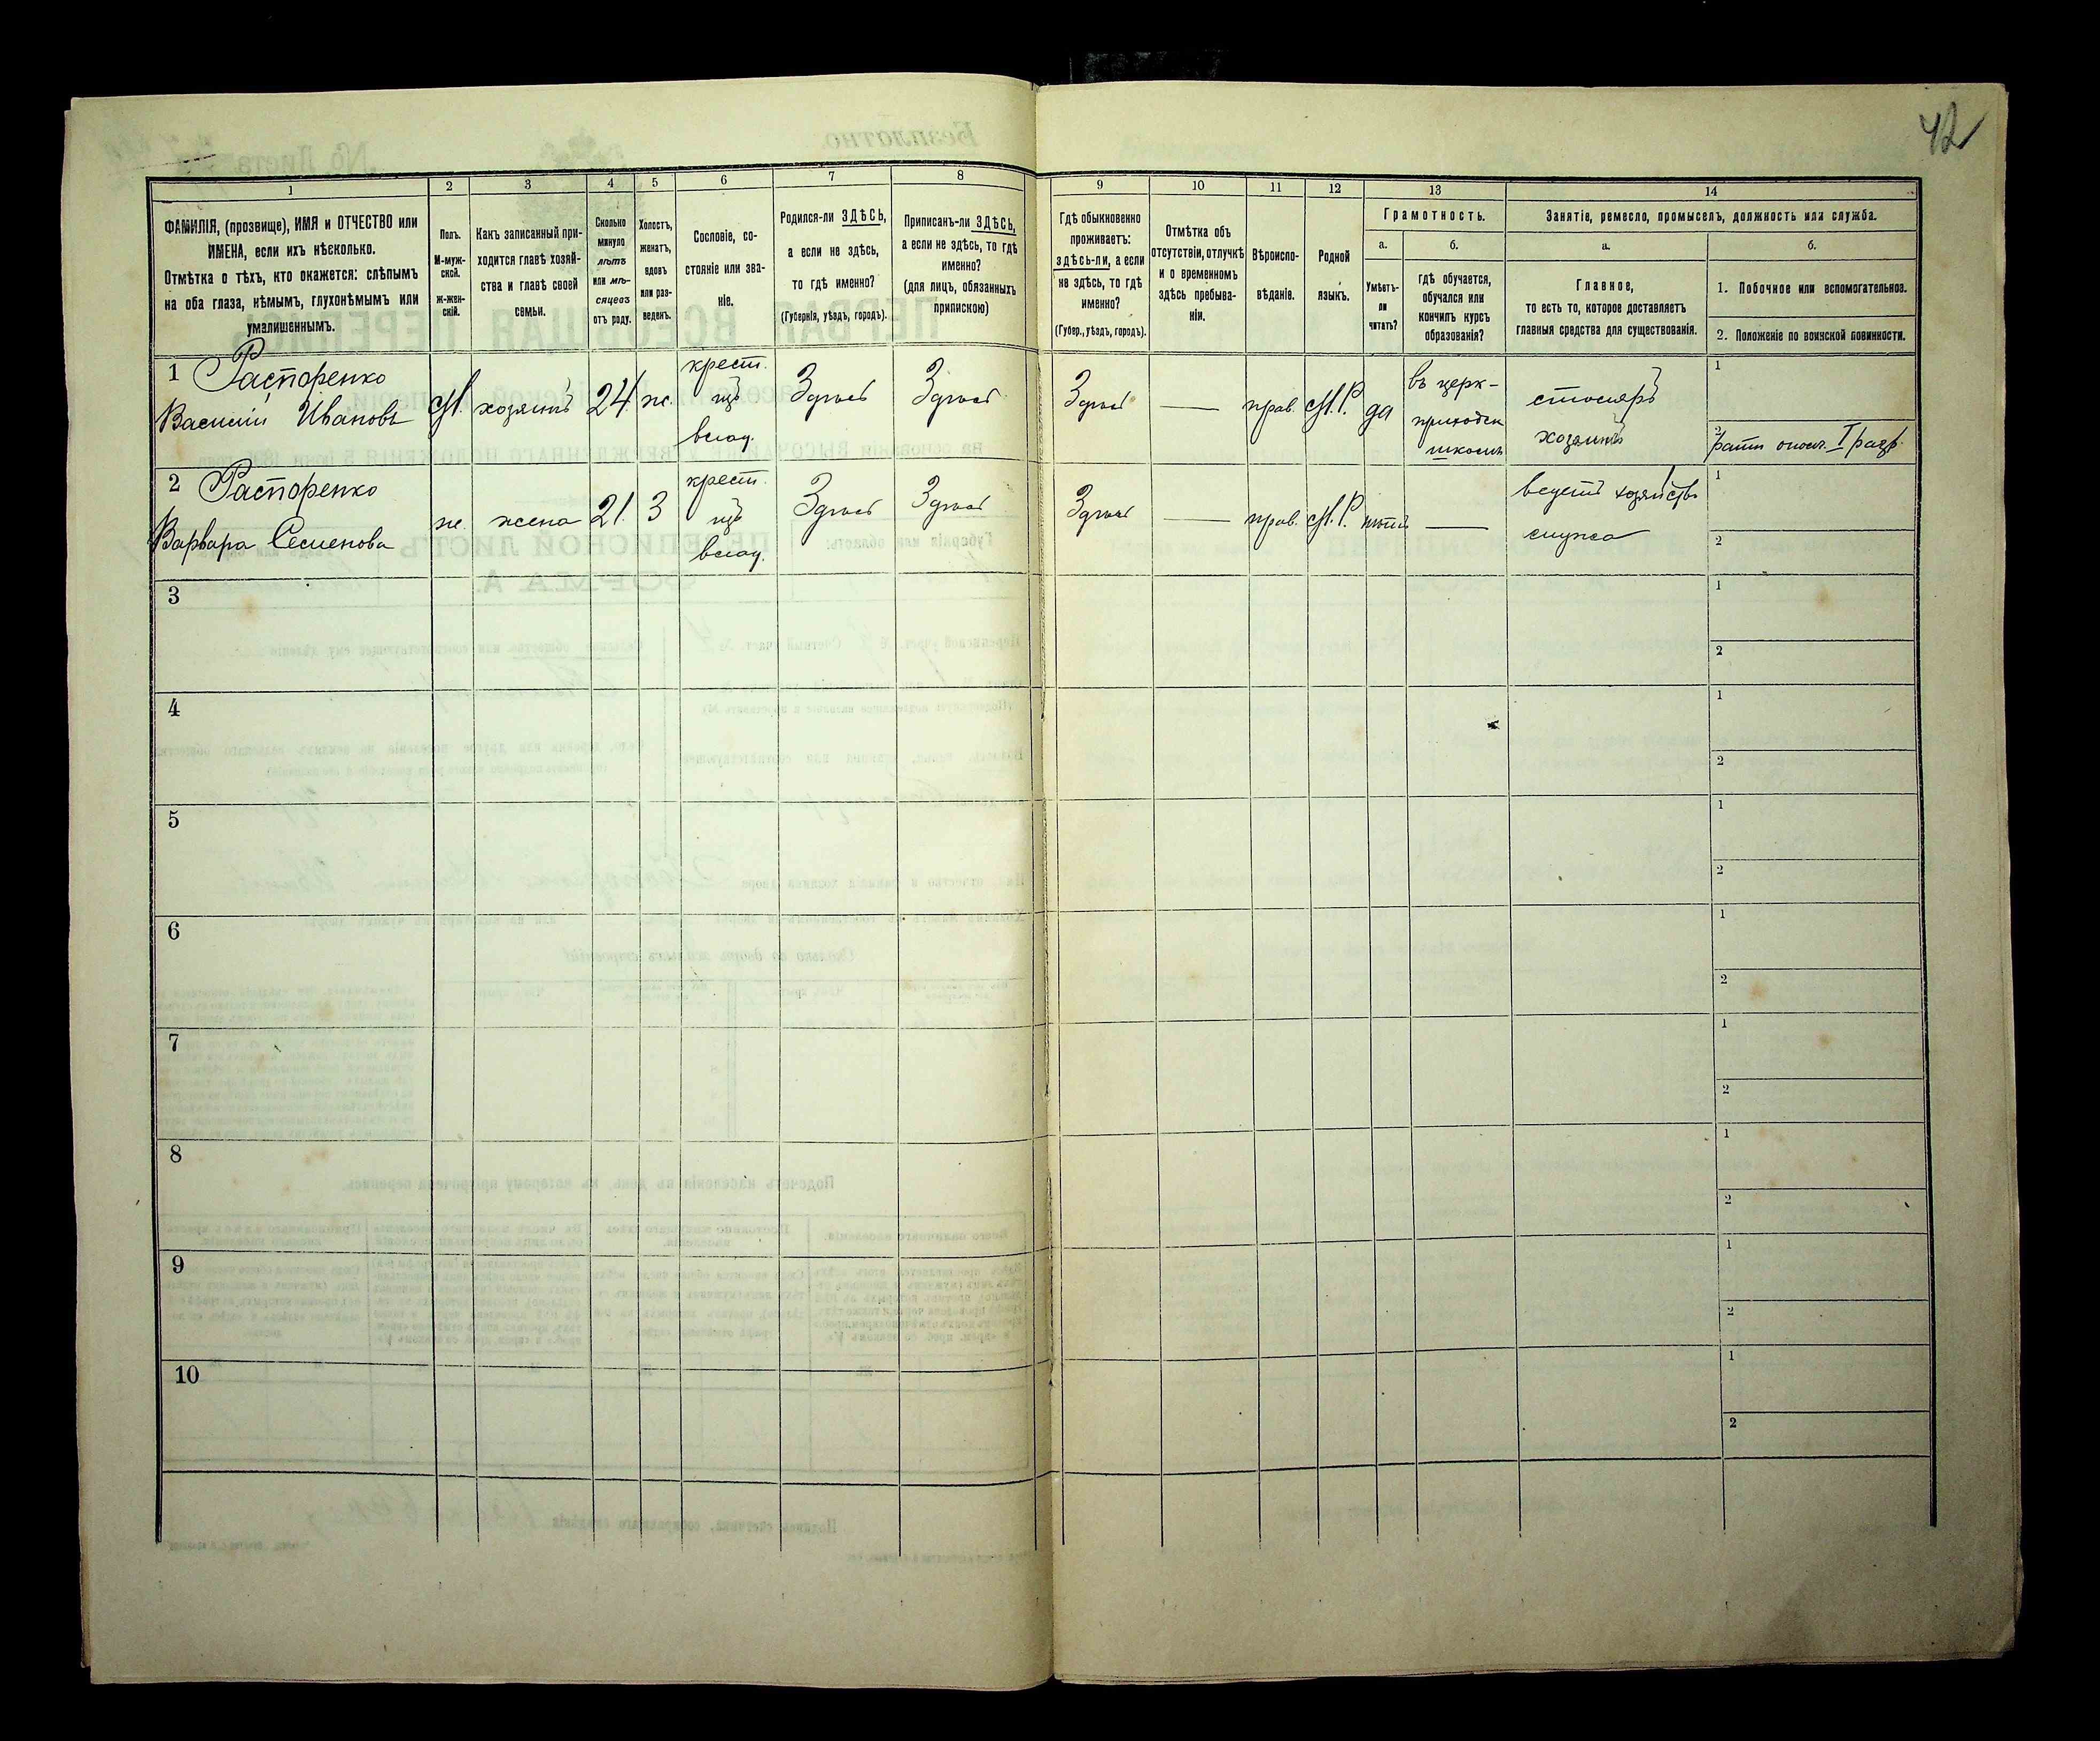 42
1
2
3
4
5
6
7
8
9
10
11
12
13
14
ФАМИЛІЯ, (прозвище), ИМЯ и ОТЧЕСТВО или
ИМЕНА, если ихъ нѣсколько.
Отмѣтка о тѣхъ, кто окажется: слѣпымъ
на оба глаза, нѣмымъ, глухонѣмымъ или
умалишеннымъ.
Полъ.
М-муж-
ской.
Ж-жен-
скій.
Какъ записанный при-
ходится главѣ хозяй-
ства и главѣ своей
семьи.
Сколько
минуло
лѣтъ
или мѣ-
сяцевъ
отъ роду.
Холостъ,
женатъ,
вдовъ
или раз-
веденъ.
Сословіе, со-
стояніе или зва-
ніе.
Родился-ли ЗДѢСЬ,
а если не здѣсь,
то гдѣ именно?
(Губернія, уѣздъ, городъ).
Приписанъ-ли ЗДѢСЬ,
а если не здѣсь, то гдѣ
именно?
(для лицъ, обязанныхъ
припискою)
Гдѣ обыкновенно
проживаетъ:
здѣсь-ли, а если
не здѣсь, то гдѣ
именно?
(Губер., уѣздъ, городъ).
Отмѣтка объ
отсутствіи, отлучкѣ
и о временномъ
здѣсь пребыва-
ніи.
Вѣроиспо-
вѣданіе.
Родной
языкъ.
Грамотность.
а.
Умѣетъ-
ли
читать?
б.
гдѣ обучается,
обучался или
кончилъ курсъ
образованія?
Занятіе, ремесло, промыселъ, должность или служба.
а.
Главное,
то есть то, которое доставляетъ
главныя средства для существованія.
б.
1. Побочное или вспомогательное.
2. Положеніе по воинской повинности.
1
Василій Ивановъ
М.
хозяинъ
24
ж.
крест.
Здѣсь
Здѣсь
Здѣсь
—
прав.
М. Р.
да
въ церк-
приходск
школѣ
столяръ
хозяинъ
1
2
ратн. ополч. I разр.
2
Варвара Семенова
ж.
жена
21.
З
крест.
Здѣсь
Здѣсь
Здѣсь
—
прав.
М. Р.
нѣтъ
—
ведетъ хозяйство
мужа
1
2
3
1
2
4
1
2
5
1
2
6
1
2
7
1
2
8
1
2
9
1
2
10
1
2